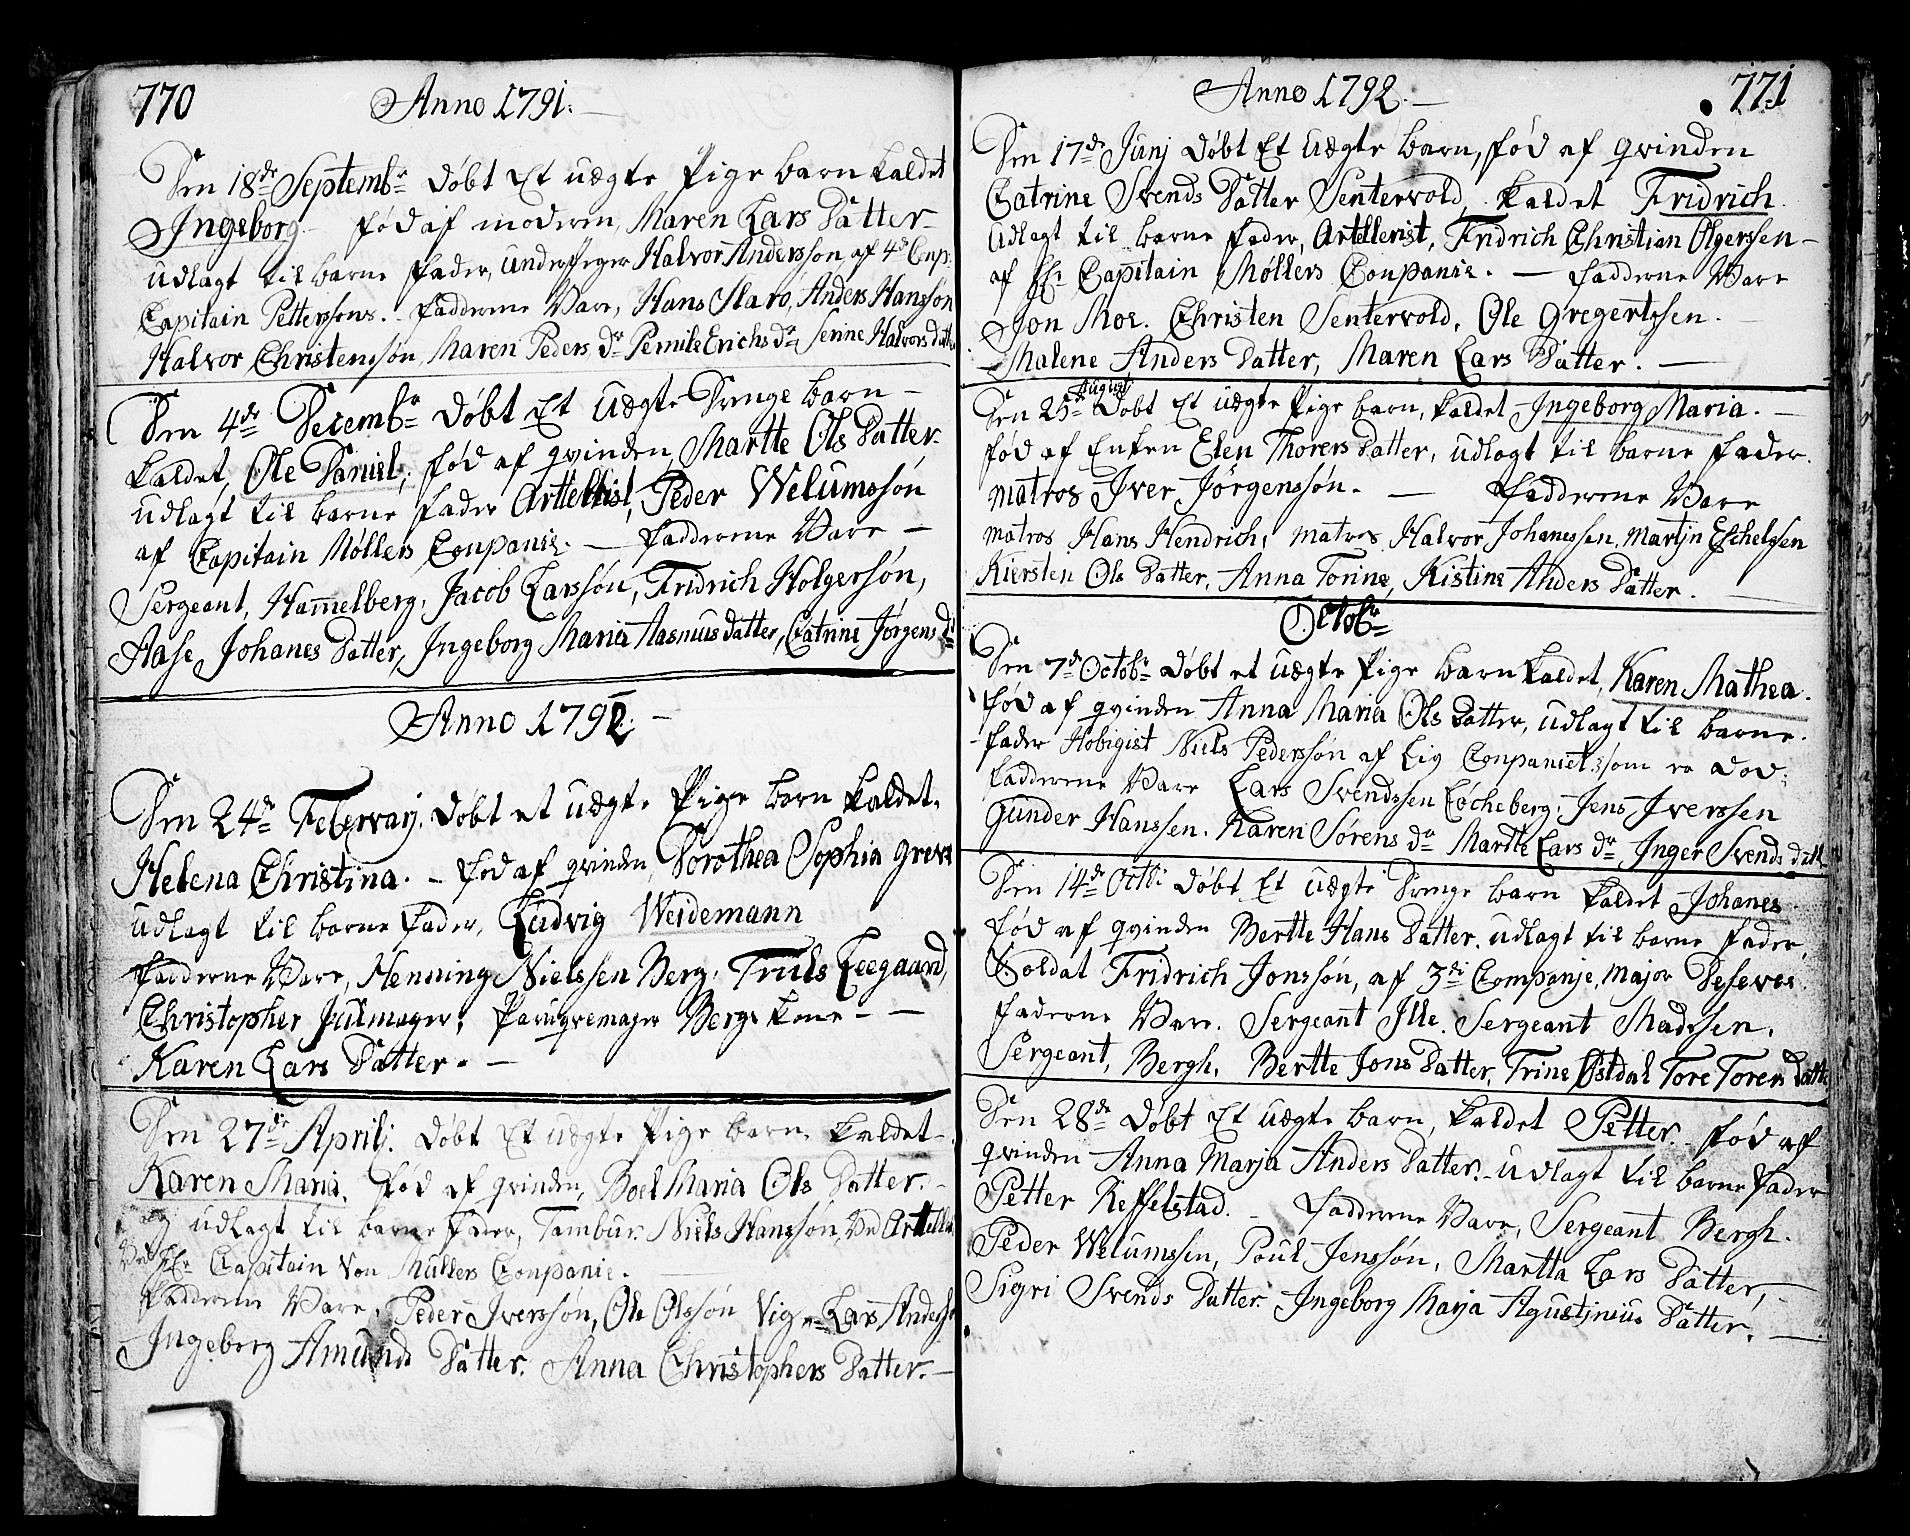 770 Anno 1791.
Den 18de Septembr døbt Et uægte Pige barn kaldet
Ingeborg fød af moderen, Maren Lars Datter
udlagt til barne fader, Halvor Anderssøn af 4de Comp.
Capitain Petterssens. Fadderne Vare, Hans Staro, Anders Hanssøn
Halvor Christenssøn, Maren Peders dr Pernile Erichs dr, Senne Halvors datter
Den 4de Decembr døbt Et uægte Drenge barn
kaldet, Ole Daniel, fød af qvinden, Martte Ols Datter.
udlagt til barne fader Arttellist, Peder Welumssøn
af Capitain Møllers Companie. Fadderne Vare
Sergeant, Hammelberg, Jacob Larssøn, Fridrich Holgersøn,
Aase Johanes Datter, Ingeborg Maria Aasmus datter, Catrine Jørgens dr
Anno 1792.
Den 24de Februarj. døbt et uægte Pige barn kaldet,
Helena Christina. fød af qvinden, Dorothea Sophia Greve
udlagt til barne fader, Ludvig Weidemann
Fadderne Vare, Henning Nielssen Berg, Truls Leegaard,
Christopher Julmager, Paruqvemager Bergs kone
Karen Lars Datter.
Den 27de Aprilj. døbt Et uægte Pige barn kaldet
Karen Maria, fød af qvinden, Boel Maria Ols Datter.
og udlagt til barne fader, Tambur. Niels Hanssøn, Ved Artelle
Ved Hr Capitain Von Mullers Companie.
Fadderne Vare, Peder Iverssøn, Ole Olssøn Vig, Lars Anderss
Ingeborg Amunds Datter. Anna Christophers Datter.
Anno 1792. 771
Den 17de Junj døbt Et uægte barn, fød af qvinden
Catrine Svends Datter Sentervold, kaldet Fridrich
Udlagt til barne fader, Artellerist, Fridrich Christian Olgerssen
af Hr Capitain Møllers Companie. Fadderne Vare
Jon Moe. Christen Sentervold, Ole Gregertssen.
Malene Anders Datter, Maren Lars Datter.
August
Den 25de Døbt Et uægte Pige barn, kaldet Ingeborg Maria.
fød af Enken Elen Thorers Datter, udlagt til barne fader.
matros Iver Jørgenssøn. Fadderne Vare
matros Hans Hendrich, matros Halvor Johanessen, Martjn Eschelssen
Kiersten Ols Datter, Anna Torine, Kistine Anders Datter.
Octobr
Den 7de Octobr døbt et uægte Pige barn kaldet, Karen Mathea.
fød af qvinden Anna Maria Ols Datter, udlagt til barne.
fader Hobigist Niels Pederssøn af Liv Companiet, som er død.
Fadderne Vare Lars Svendssen Løcheberg, Jens Iverssen
Gunder Hanssen. Karen Sørens dr Martte Lars dr, Inger Svends datt
Den 14de Octb: døbt Et uægte Drenge barn kaldet Johanes.
fød af qvinden Bertte Hans Datter. udlagt til barne fader,
Soldat Fridrich Jonssøn, af 3di Companje, major Deseves.
Faderne Vare. Sergeant Ille. Sergeant Madssen.
Sergeant, Bergh. Bertte Jons Datter, Trine Østdal Tore Tores Datte
Den 28de Døbt Et uægte barn, kaldet Petter. fød af
qvinden Anna Marja Anders Datter. udlagt til barne fader
Petter Keffelstad. Fadderne Vare, Sergeant Bergh.
Peder Welumssen, Poul Jenssøn, Martta Lars Datter,
Sigri Svends Datter. Ingeborg Marja Agustinius Datter.